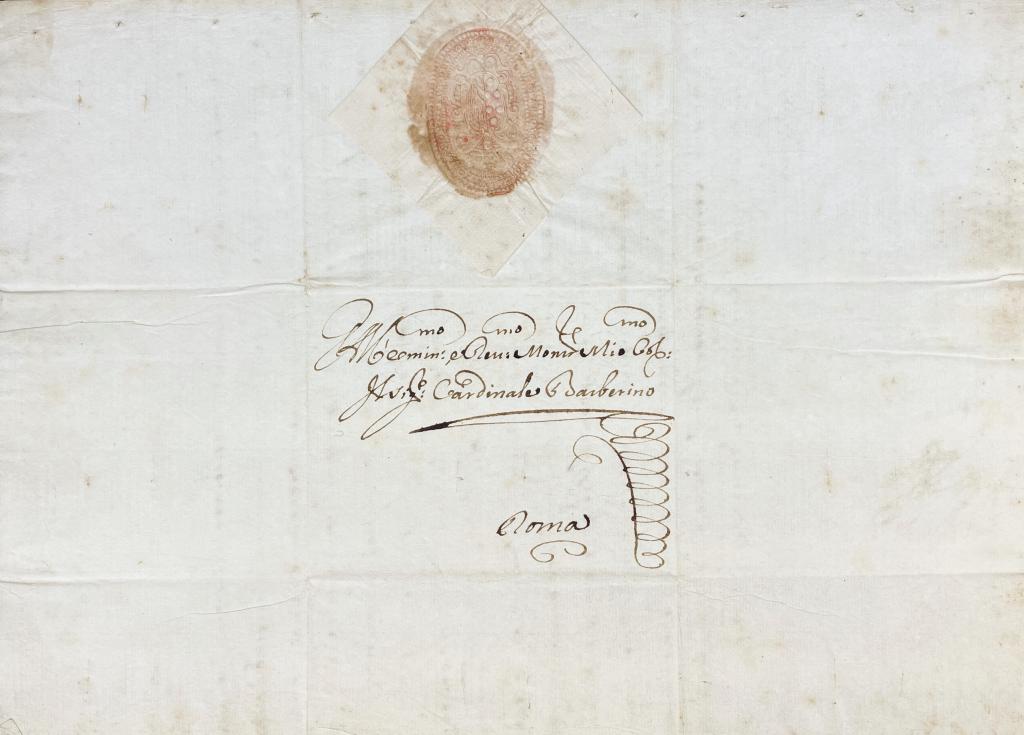 All'Emin:mo e Reu:mo Monsr Mio Col:mo
Il Sig:r Cardinale Barberino
Roma